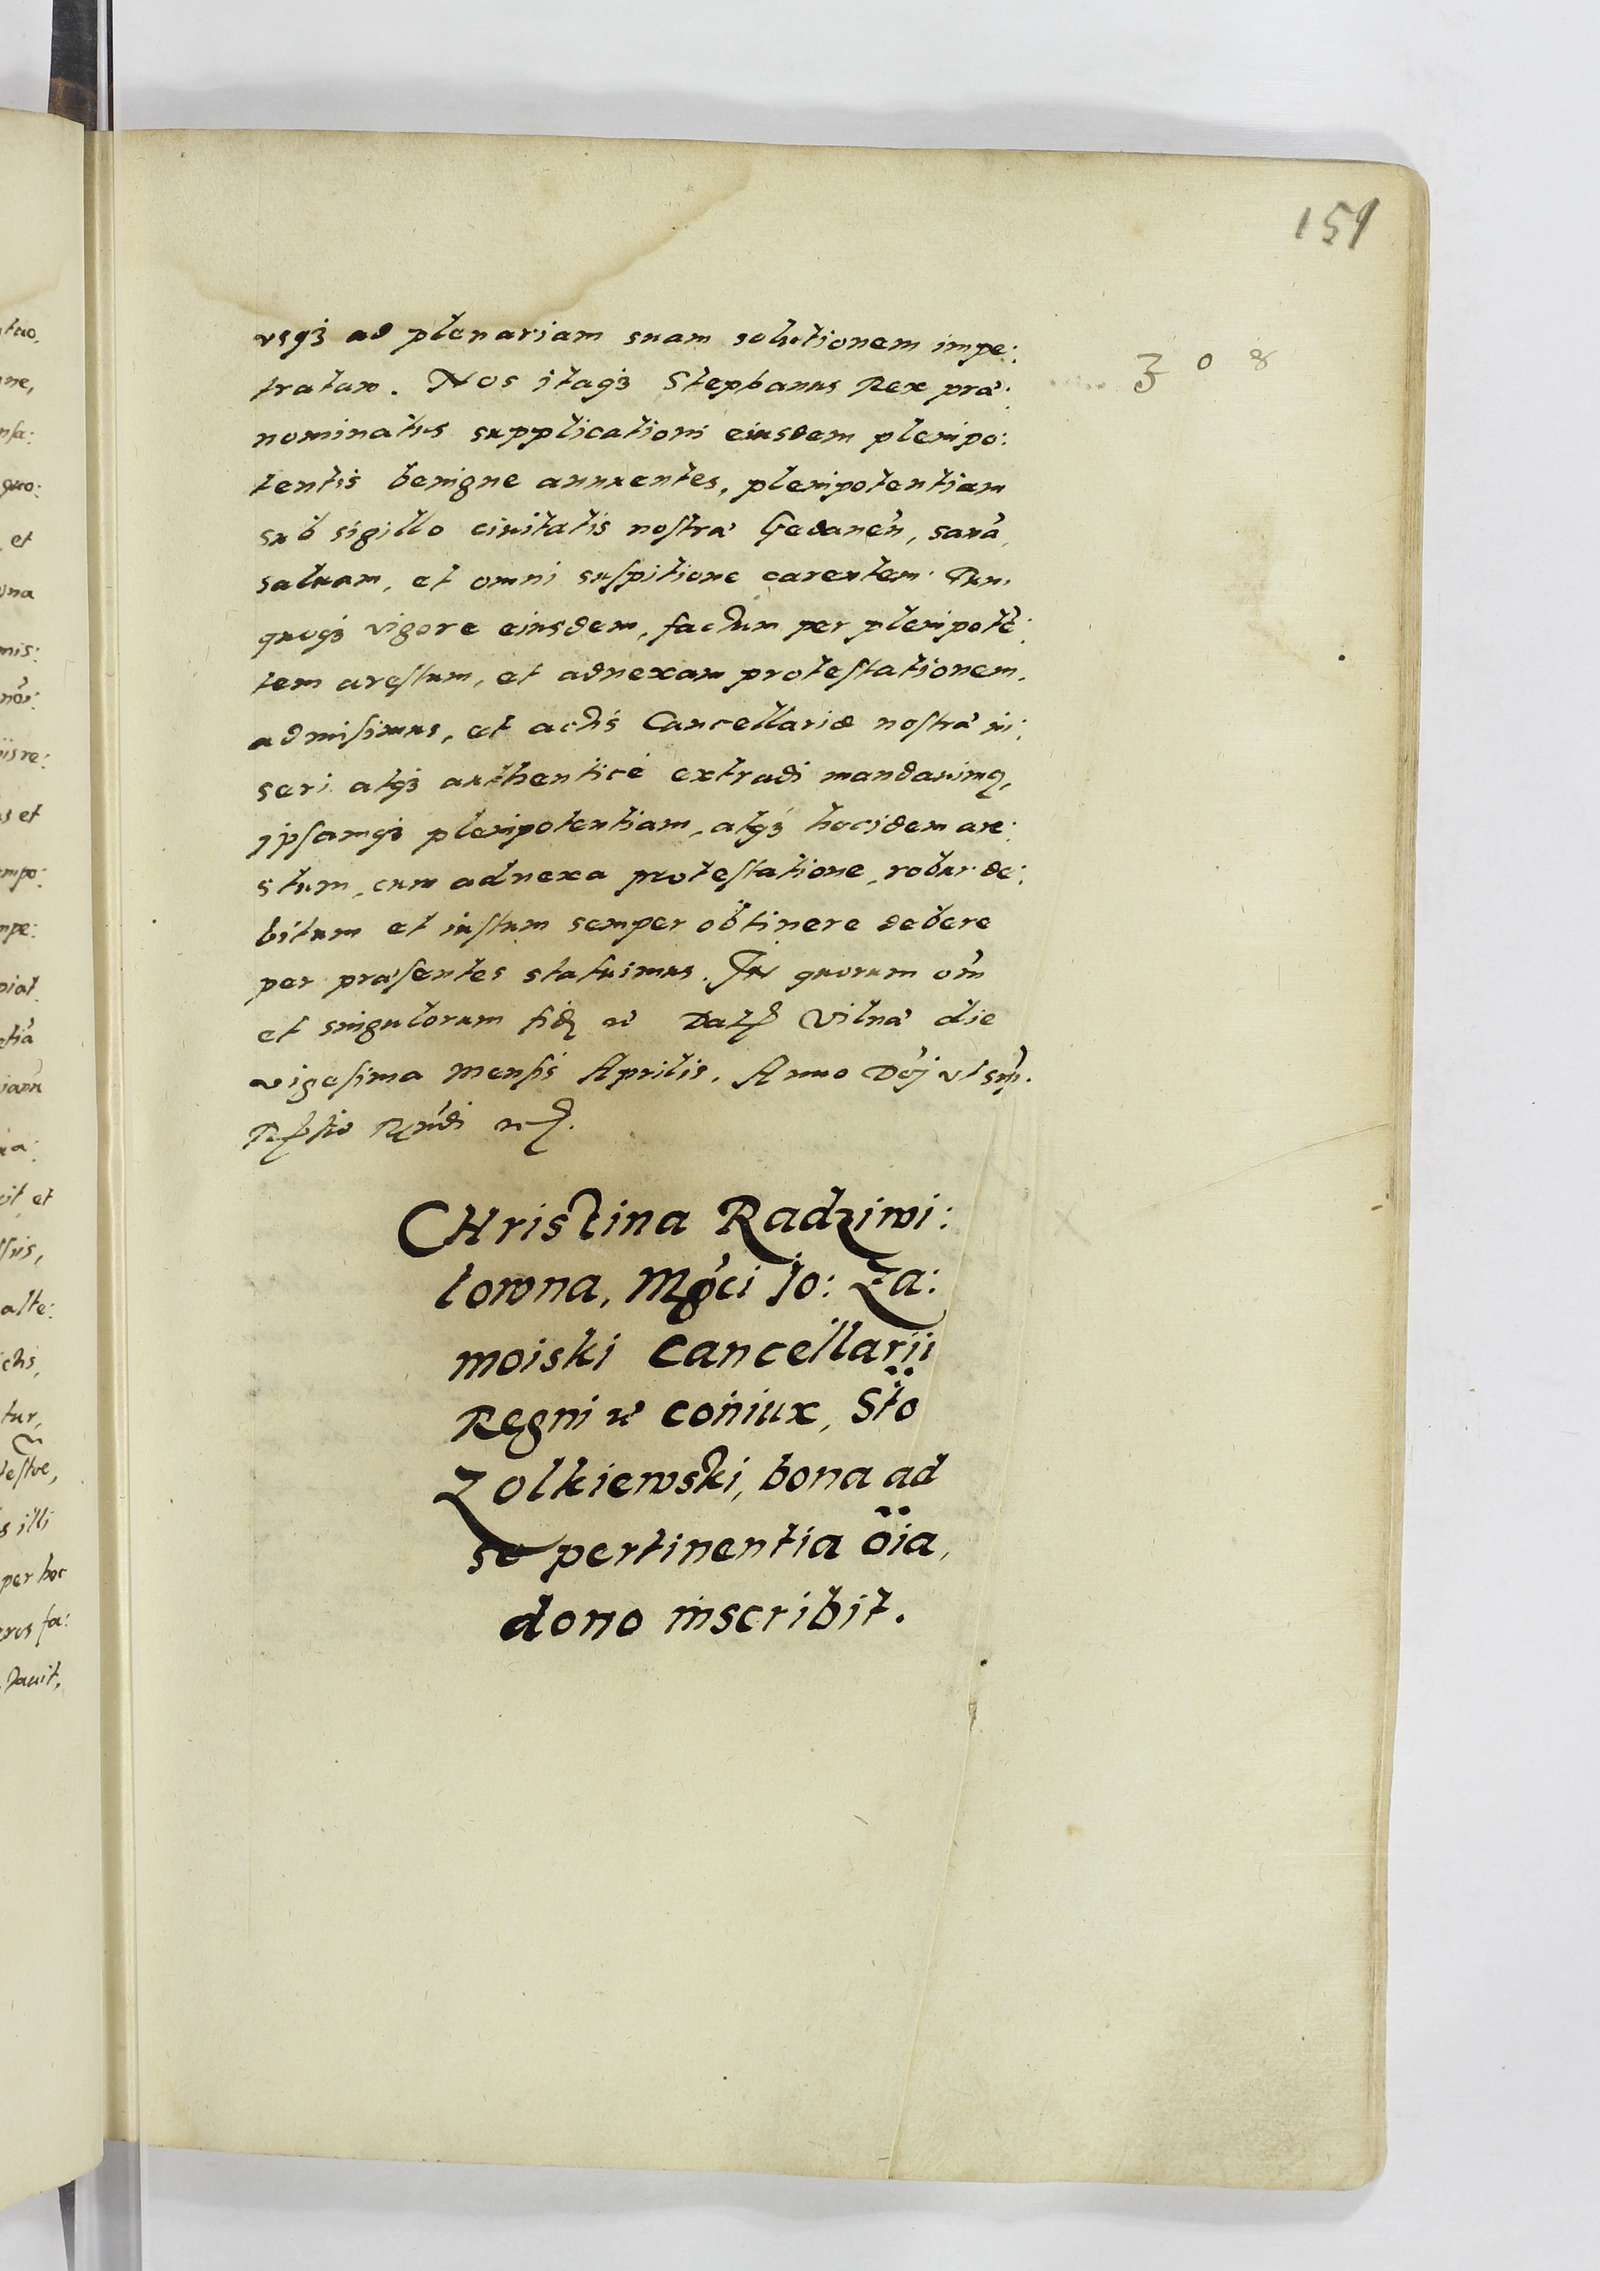 151
usq3 ad plenariam suam solutionem impe:
tratam. Nos itaq3 Stephanus Rex præ:
3 0 8
nominatus supplicationi eiusdem plenipo:
tentis benigne annuentes, plenipotentiam
sub sigillo civitatis nostræ Gedanen̄, sanā,
saluam, et omni suspitione carentem. Tun.
quoq3 vigore eiusdem, factum per plenipotē:
tem arestum, et adnexam protestationem.
admisimus, et actis Cancellariæ nostræ in:
seri atq3 authenticè extradi mandauimq,
ipsamq3 plenipotentiam, atq3 hocidem are:
stum, cum adnexa protestatione, robur de:
bitum et iustum semper obtinere debere
per præsentes statuimus. In quorum om̄
et singulorum fid etc Datz Vilnæ die
vigesima Mensis Aprilis. Anno Dnj ut sup̄.
CHristina Radziwi:
lowna, Mgci Jo: Za:
moiski Cancellarii
Regni etc coniux, Sto
Zolkiewski, bona ad
se pertinentia oīa,
dono inscribit.